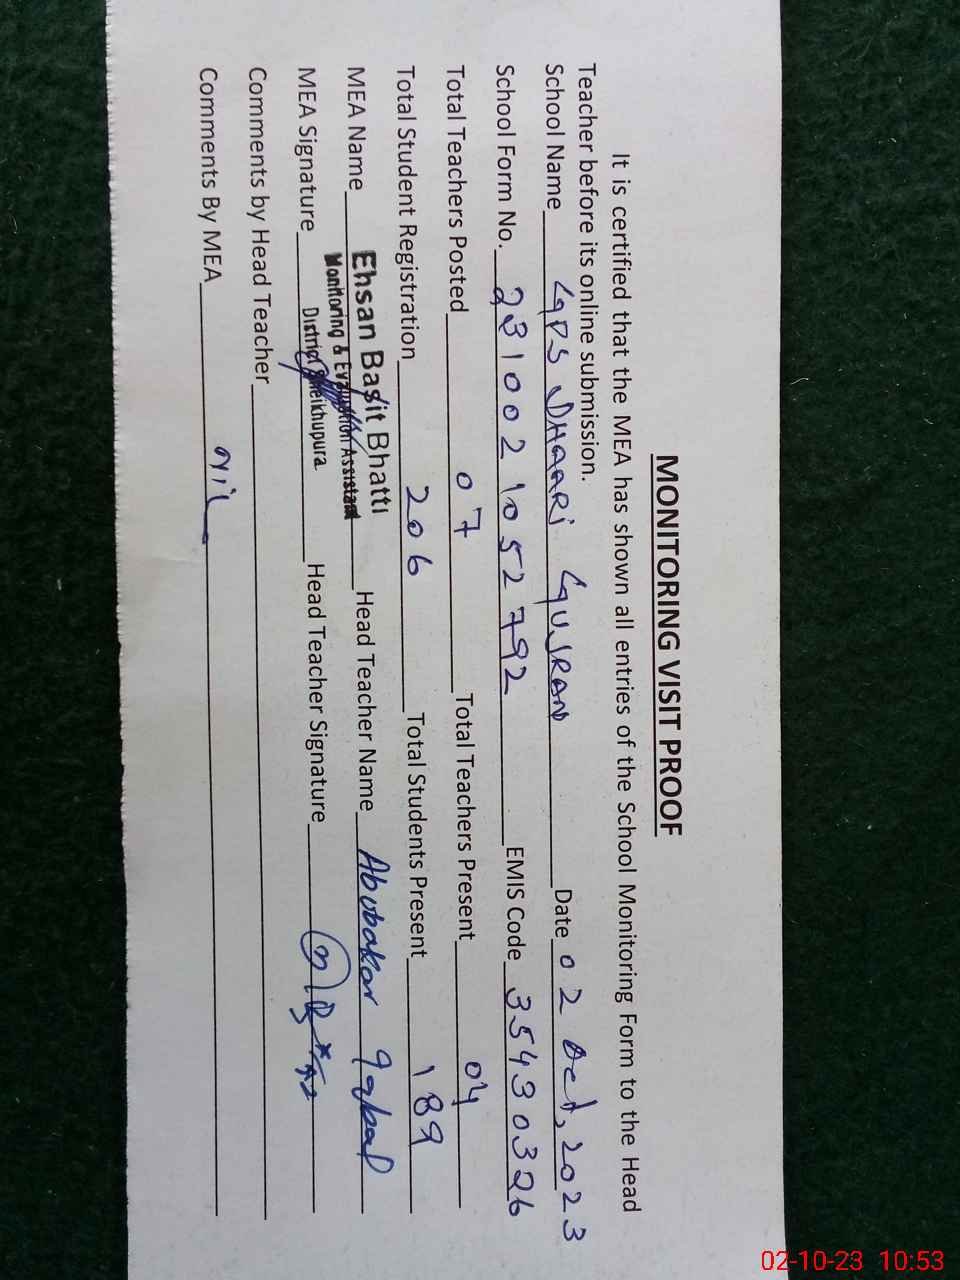 MONITORING VISIT PROOF
It is certified that the MEA has shown all entries of the School Monitoring Form to the Head
Teacher before its online submission.
School Name GPS DHAARI GUJRAN Date 02 Oct, 2023
School Form No. 2310021052792 EMIS Code 35430326
Total Teachers Posted 07 Total Teachers Present 04
Total Student Registration 206 Total Students Present 189
MEA Name Ehsan Basit Bhatti Head Teacher Name Abubakar Iqbal
Monitoring & Evaluation Assistant
MEA Signature District Sheikhupura Head Teacher Signature
Comments by Head Teacher
Comments By MEA nil
02-10-23 10:53